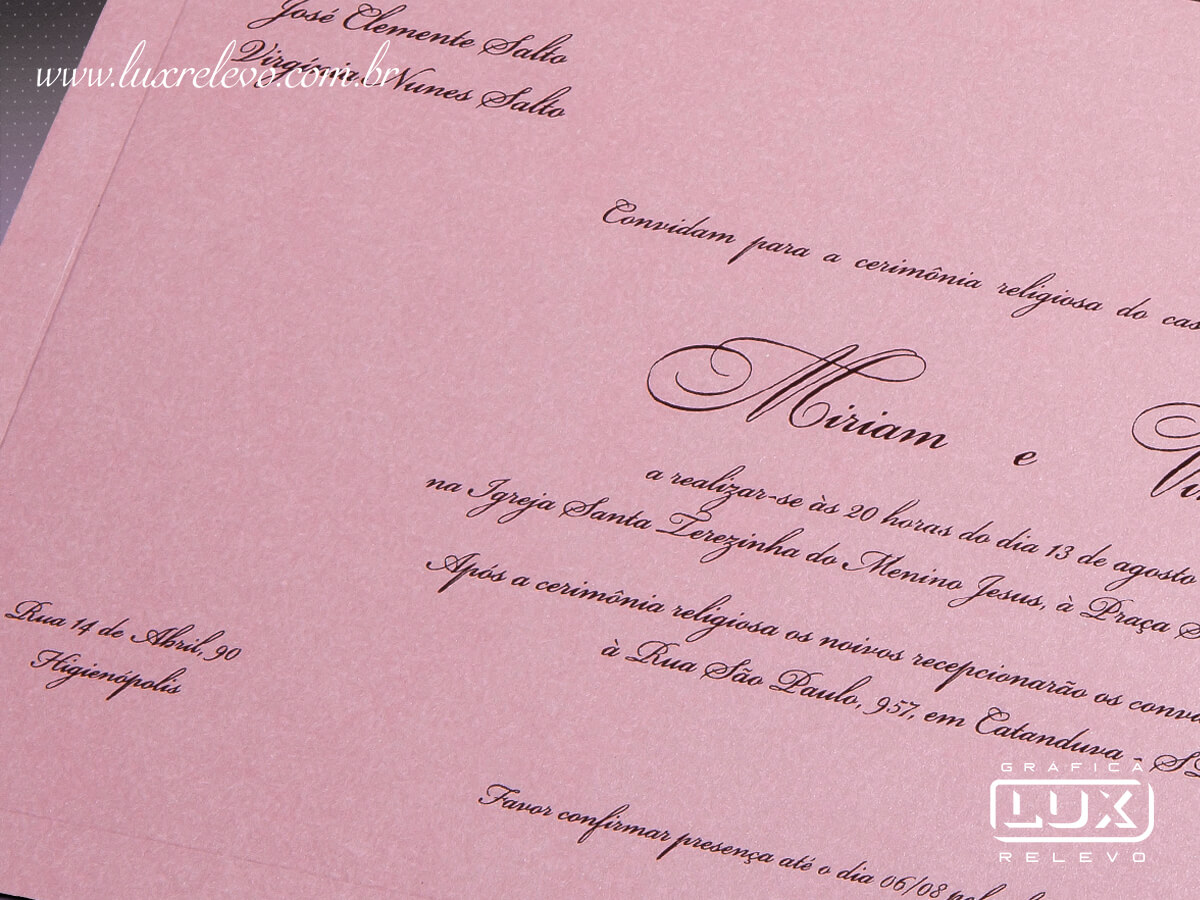 José Clemente Salto
www.luxrelevo.com.br
Virgínia Nunes Salto
Convidam para a cerimônia religiosa do
Miriam e
a realizar-se às 20 horas do dia 13 de agosto
na Igreja Santa Terezinha do Menino Jesus, à Praça
Após a cerimônia religiosa os noivos recepcionarão os
à Rua São Paulo, 957, em Catanduva -
Rua 14 de Abril, 90
Higienópolis
Favor confirmar presença até o dia 06/08
GRÁFICA
LUX
RELEVO